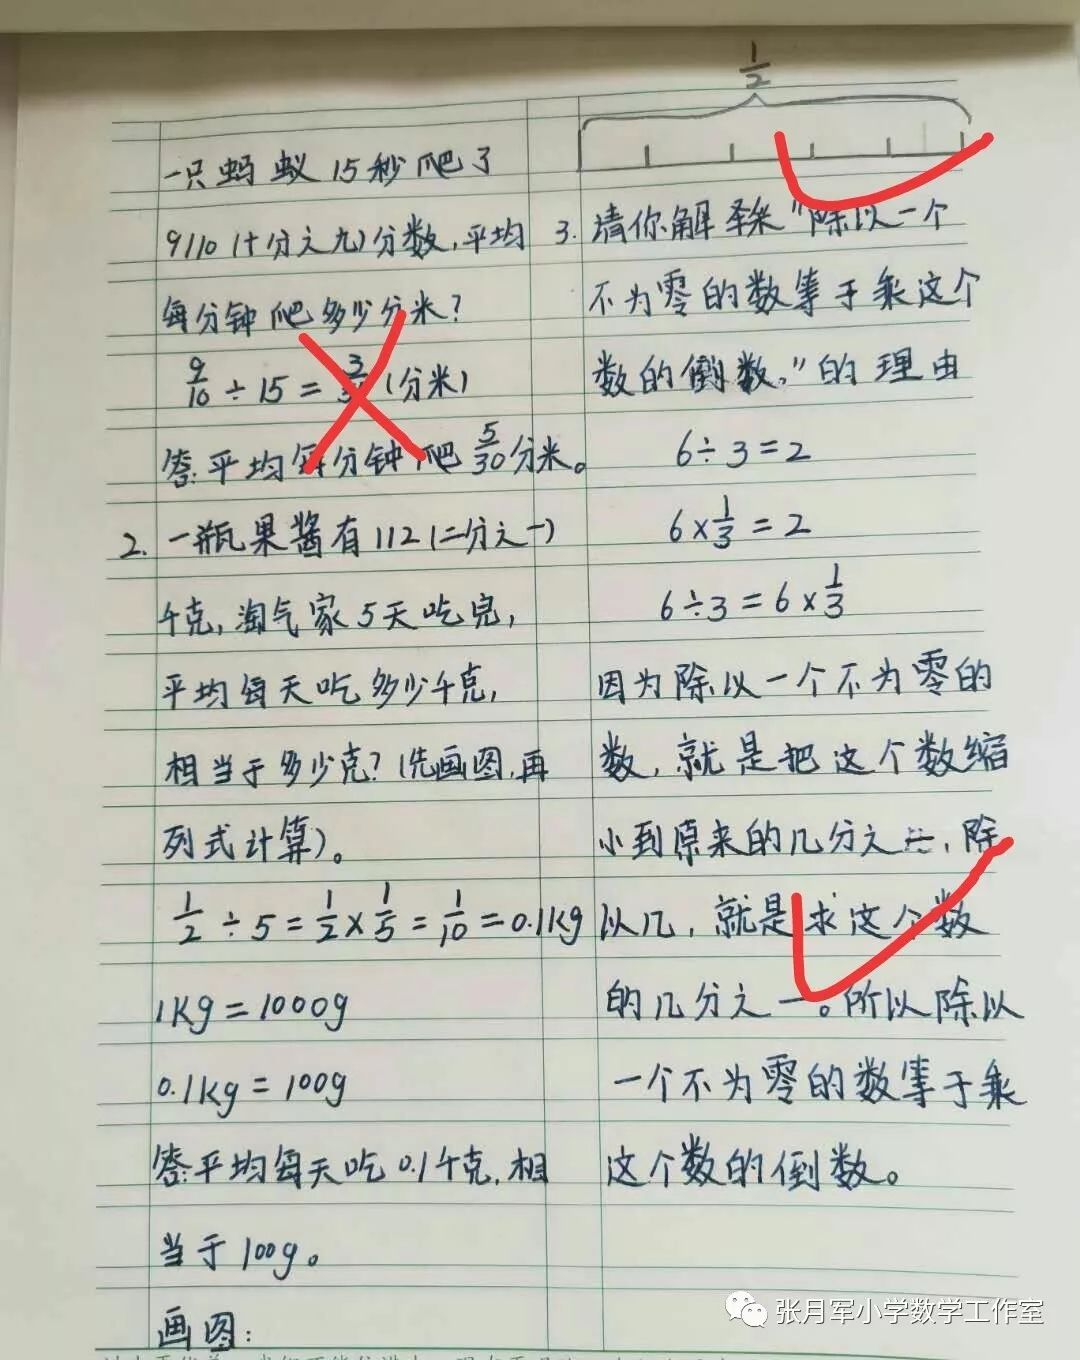 一只蚂蚁15秒爬了
9/10(十分之九)分数,平均
每分钟爬多少分米?
9/10÷15=3/ (分米)
答:平均每分钟爬5/30分米。
2.一瓶果酱有1/2(二分之一)
千克,淘气家5天吃完,
平均每天吃多少千克,
相当于多少克?(先画图,再
列式计算)。
1/2÷5=1/2×1/5=1/10=0.1kg
1kg=1000g
0.1kg=100g
答:平均每天吃0.1千克,相
当于100g。
画图:
1/2
3.请你解释"除以一个
不为零的数等于乘这个
数的倒数。"的理由
6÷3=2
6×1/3=2
6÷3=6×1/3
因为除以一个不为零的
数,就是把这个数缩
小到原来的几分之一,除
以几,就是求这个数
的几分之一。所以除以
一个不为零的数等于乘
这个数的倒数。
张月军小学数学工作室